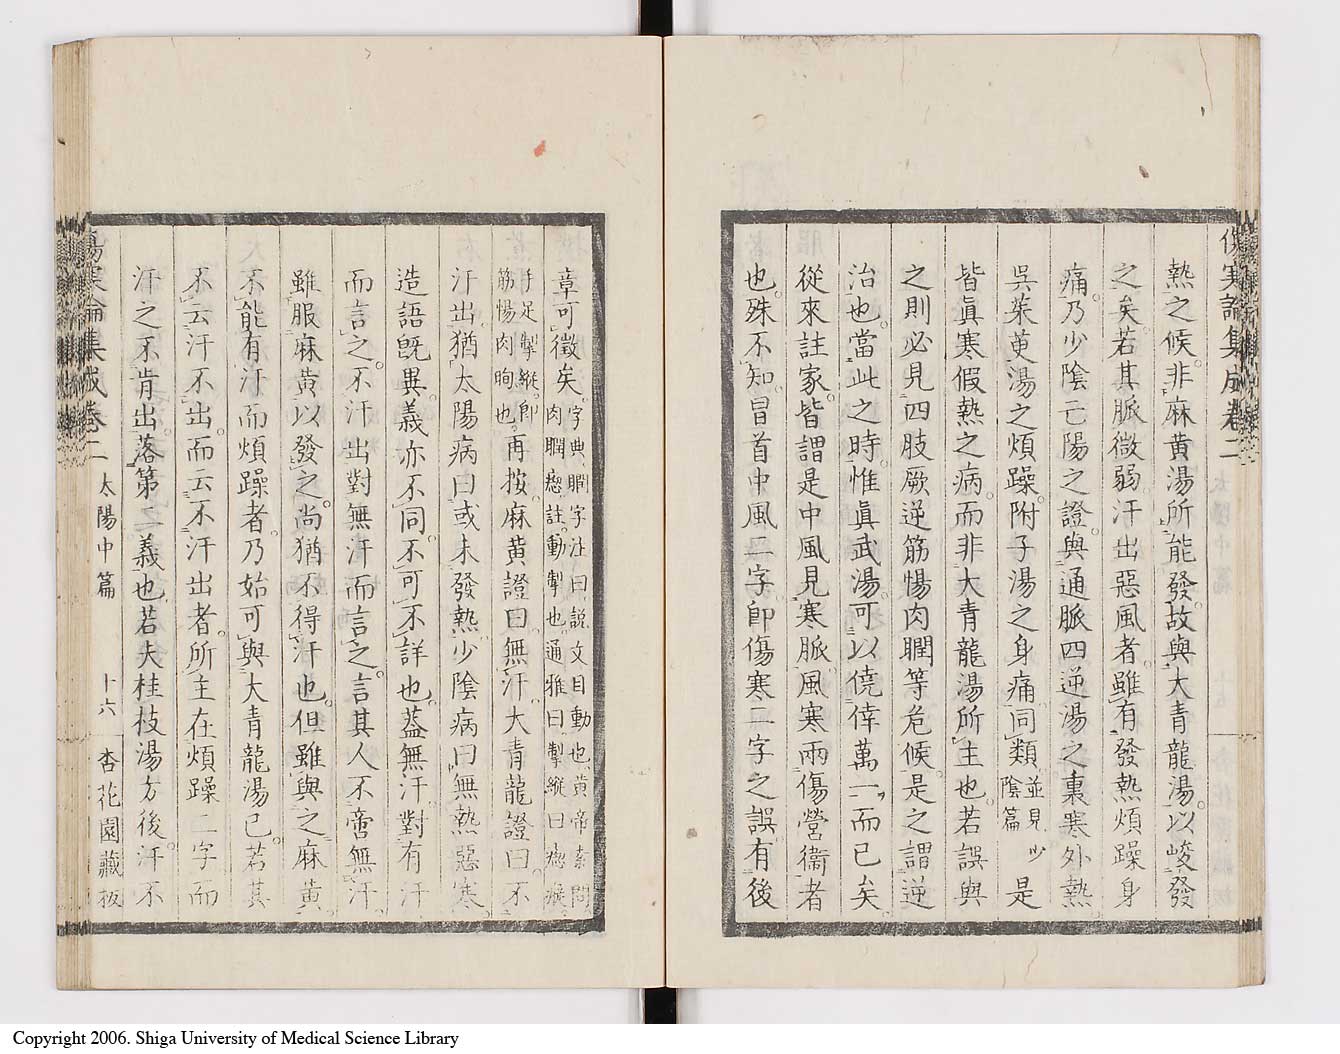 傷寒論集成卷二
熱之候。非麻黃湯所能發。故與大青龍湯。以峻發
之矣。若其脈微弱。汗出惡風者。雖有發熱煩躁身
痛。乃少陰亡陽之證。與通脈四逆湯之裏寒外熱
吳茱萸湯之煩躁。附子湯之身痛同類並見少陰篇是
皆眞寒假熱之病。而非大青龍湯所主也。若誤與
之則必見四肢厥逆筋惕肉瞤等危候。是之謂逆
治也。當此之時。惟眞武湯。可以僥倖萬一而已矣
從來註家。皆謂是中風見寒脈。風寒兩傷營衞者
也。殊不知冒首中風二字。卽傷寒二字之誤。有後
章可徵矣。字典瞤字注曰。說文目動也。黃帝素問肉瞤瘛註。動掣也。通雅曰。掣縱曰瘛瘲。
手足掣縱。卽筋惕肉眴也。再按。麻黃證曰。無汗。大青龍證曰。不
汗出。猶太陽病曰。或未發熱。少陰病曰。無熱惡寒
造語旣異。義亦不同。不可不詳也。蓋無汗。對有汗
而言之。不汗出對無汗而言之。言其人不啻無汗。
雖服麻黃以發之。尚猶不得汗也。但雖與之麻黃。
不能有汗而煩躁者。乃始可與大青龍湯已。若其
不云汗不出。而云不汗出者。所主在煩躁二字。而
汗之不肯出。落第二義也。若夫桂枝湯方後。汗不
傷寒論集成卷二 太陽中篇 十六 杏花園藏板
Copyright 2006. Shiga University of Medical Science Library